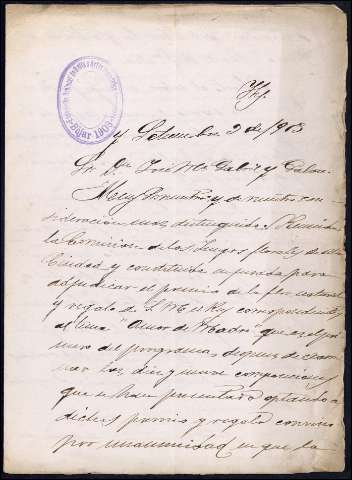 Béjar 1903
y Setiembre 2 de/903
Sr Dn José Ma Gabriel y Galan
Muy Sr nuestro y de nuestra con-
sideracion mas distinguida: Reunida
la Comision de los Juegos florales de esta
Ciudad y constituida en jurado para
adjudicar el premio de la flor natural
y regalo de S. M. el Rey correspondiente
al lema "Amor de Madre" que es el pri-
mero del programa, despues de exami-
nar las composiciones
que se han presentado optando a
dicho premio y regalo convino
por unanimidad en que la